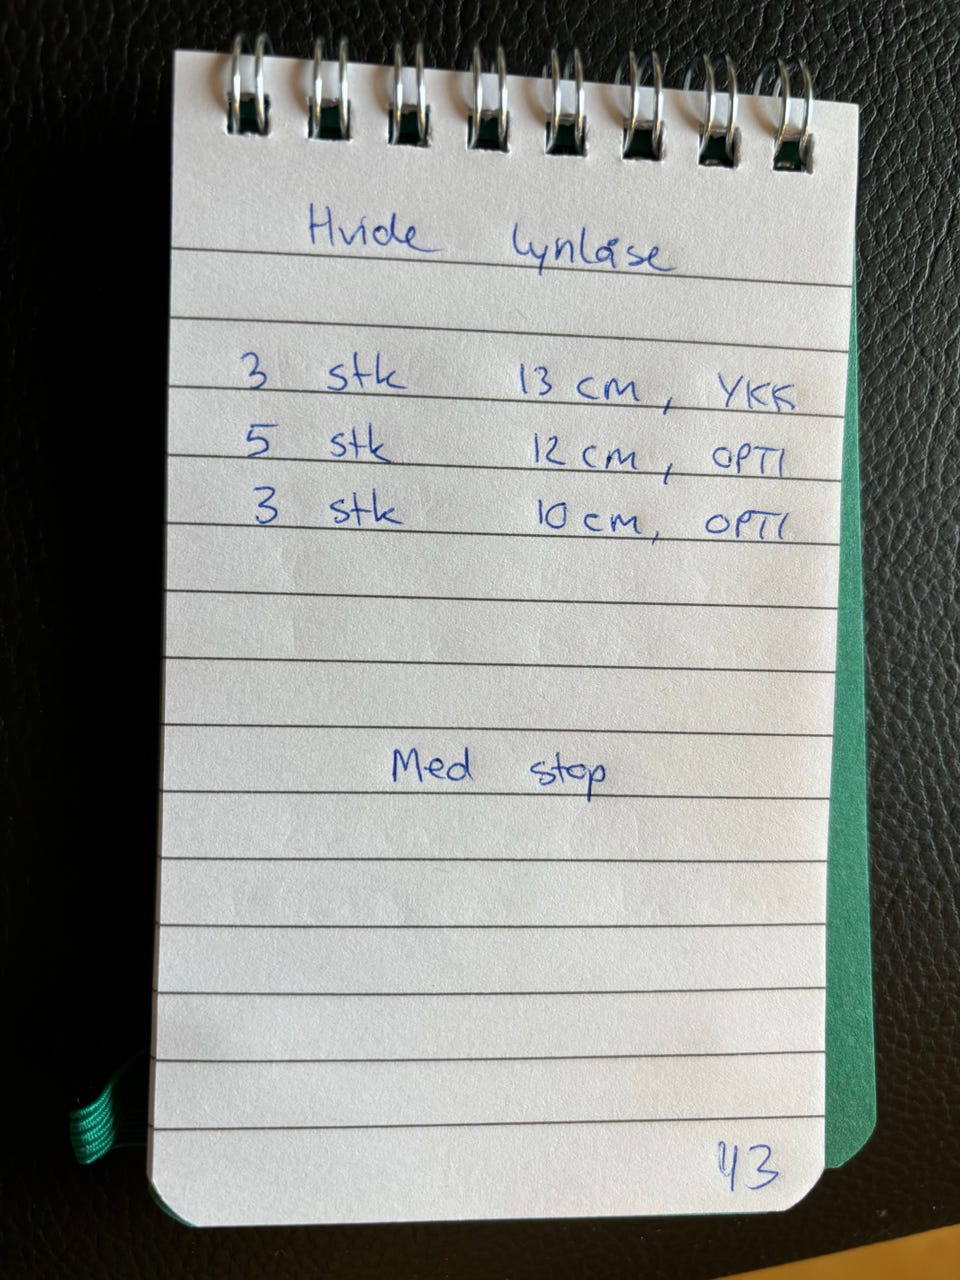 Hvide lynlåse
3 stk 13 cm, YKK
5 stk 12 cm, OPTI
3 stk 10 cm, OPTI
Med stop
43